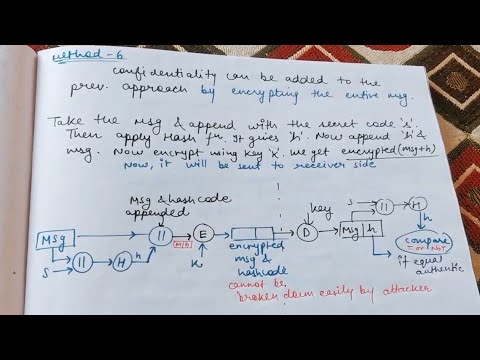 Method - 6
confidentiality can be added to the
prev. approach by encrypting the entire msg.
Take the msg & append with the secret code 's'.
Then apply Hash fn. It gives 'h'. Now append 'h' &
msg. Now encrypt using key 'k'. we get encrypted (msg+h)
Now, it will be sent to receiver side
Msg & hashcode
appended
key
S
||
H
h
Msg
||
M|h
E
D
Msg|h
compare
= or Not
S
||
H
h
K
encrypted
msg &
hashcode
if equal
authentic
cannot be
broken down easily by attacker